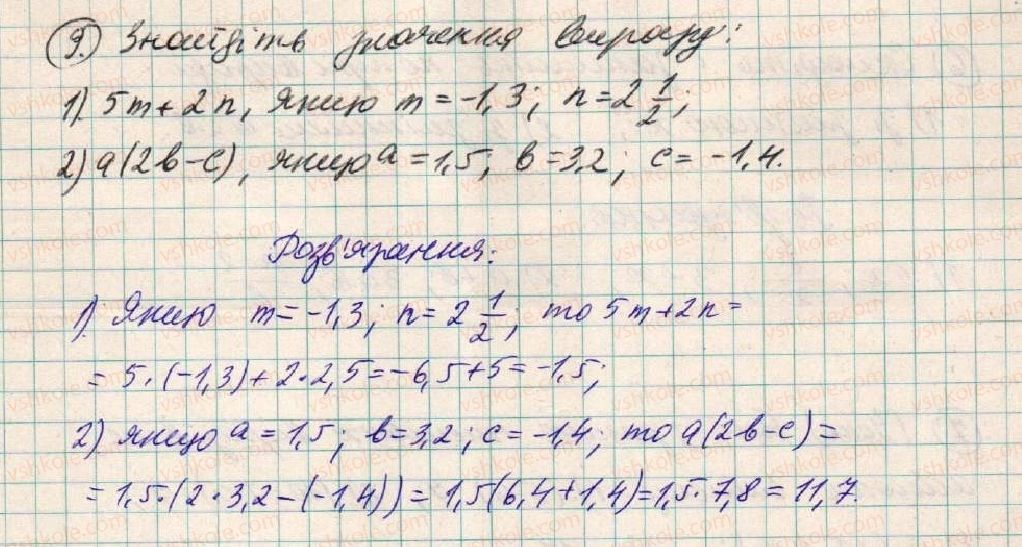 9. Знайдіть значення виразу:
1) 5m + 2n, якщо m = -1,3; n = 2 1/2;
2) a(2b - c), якщо a = 1,5; b = 3,2; c = -1,4.
Розв'язання:
1) Якщо m = -1,3; n = 2 1/2; то 5m + 2n =
= 5·(-1,3) + 2·2,5 = -6,5 + 5 = -1,5;
2) якщо a = 1,5; b = 3,2; c = -1,4; то a(2b - c) =
= 1,5·(2·3,2 - (-1,4)) = 1,5(6,4 + 1,4) = 1,5·7,8 = 11,7.